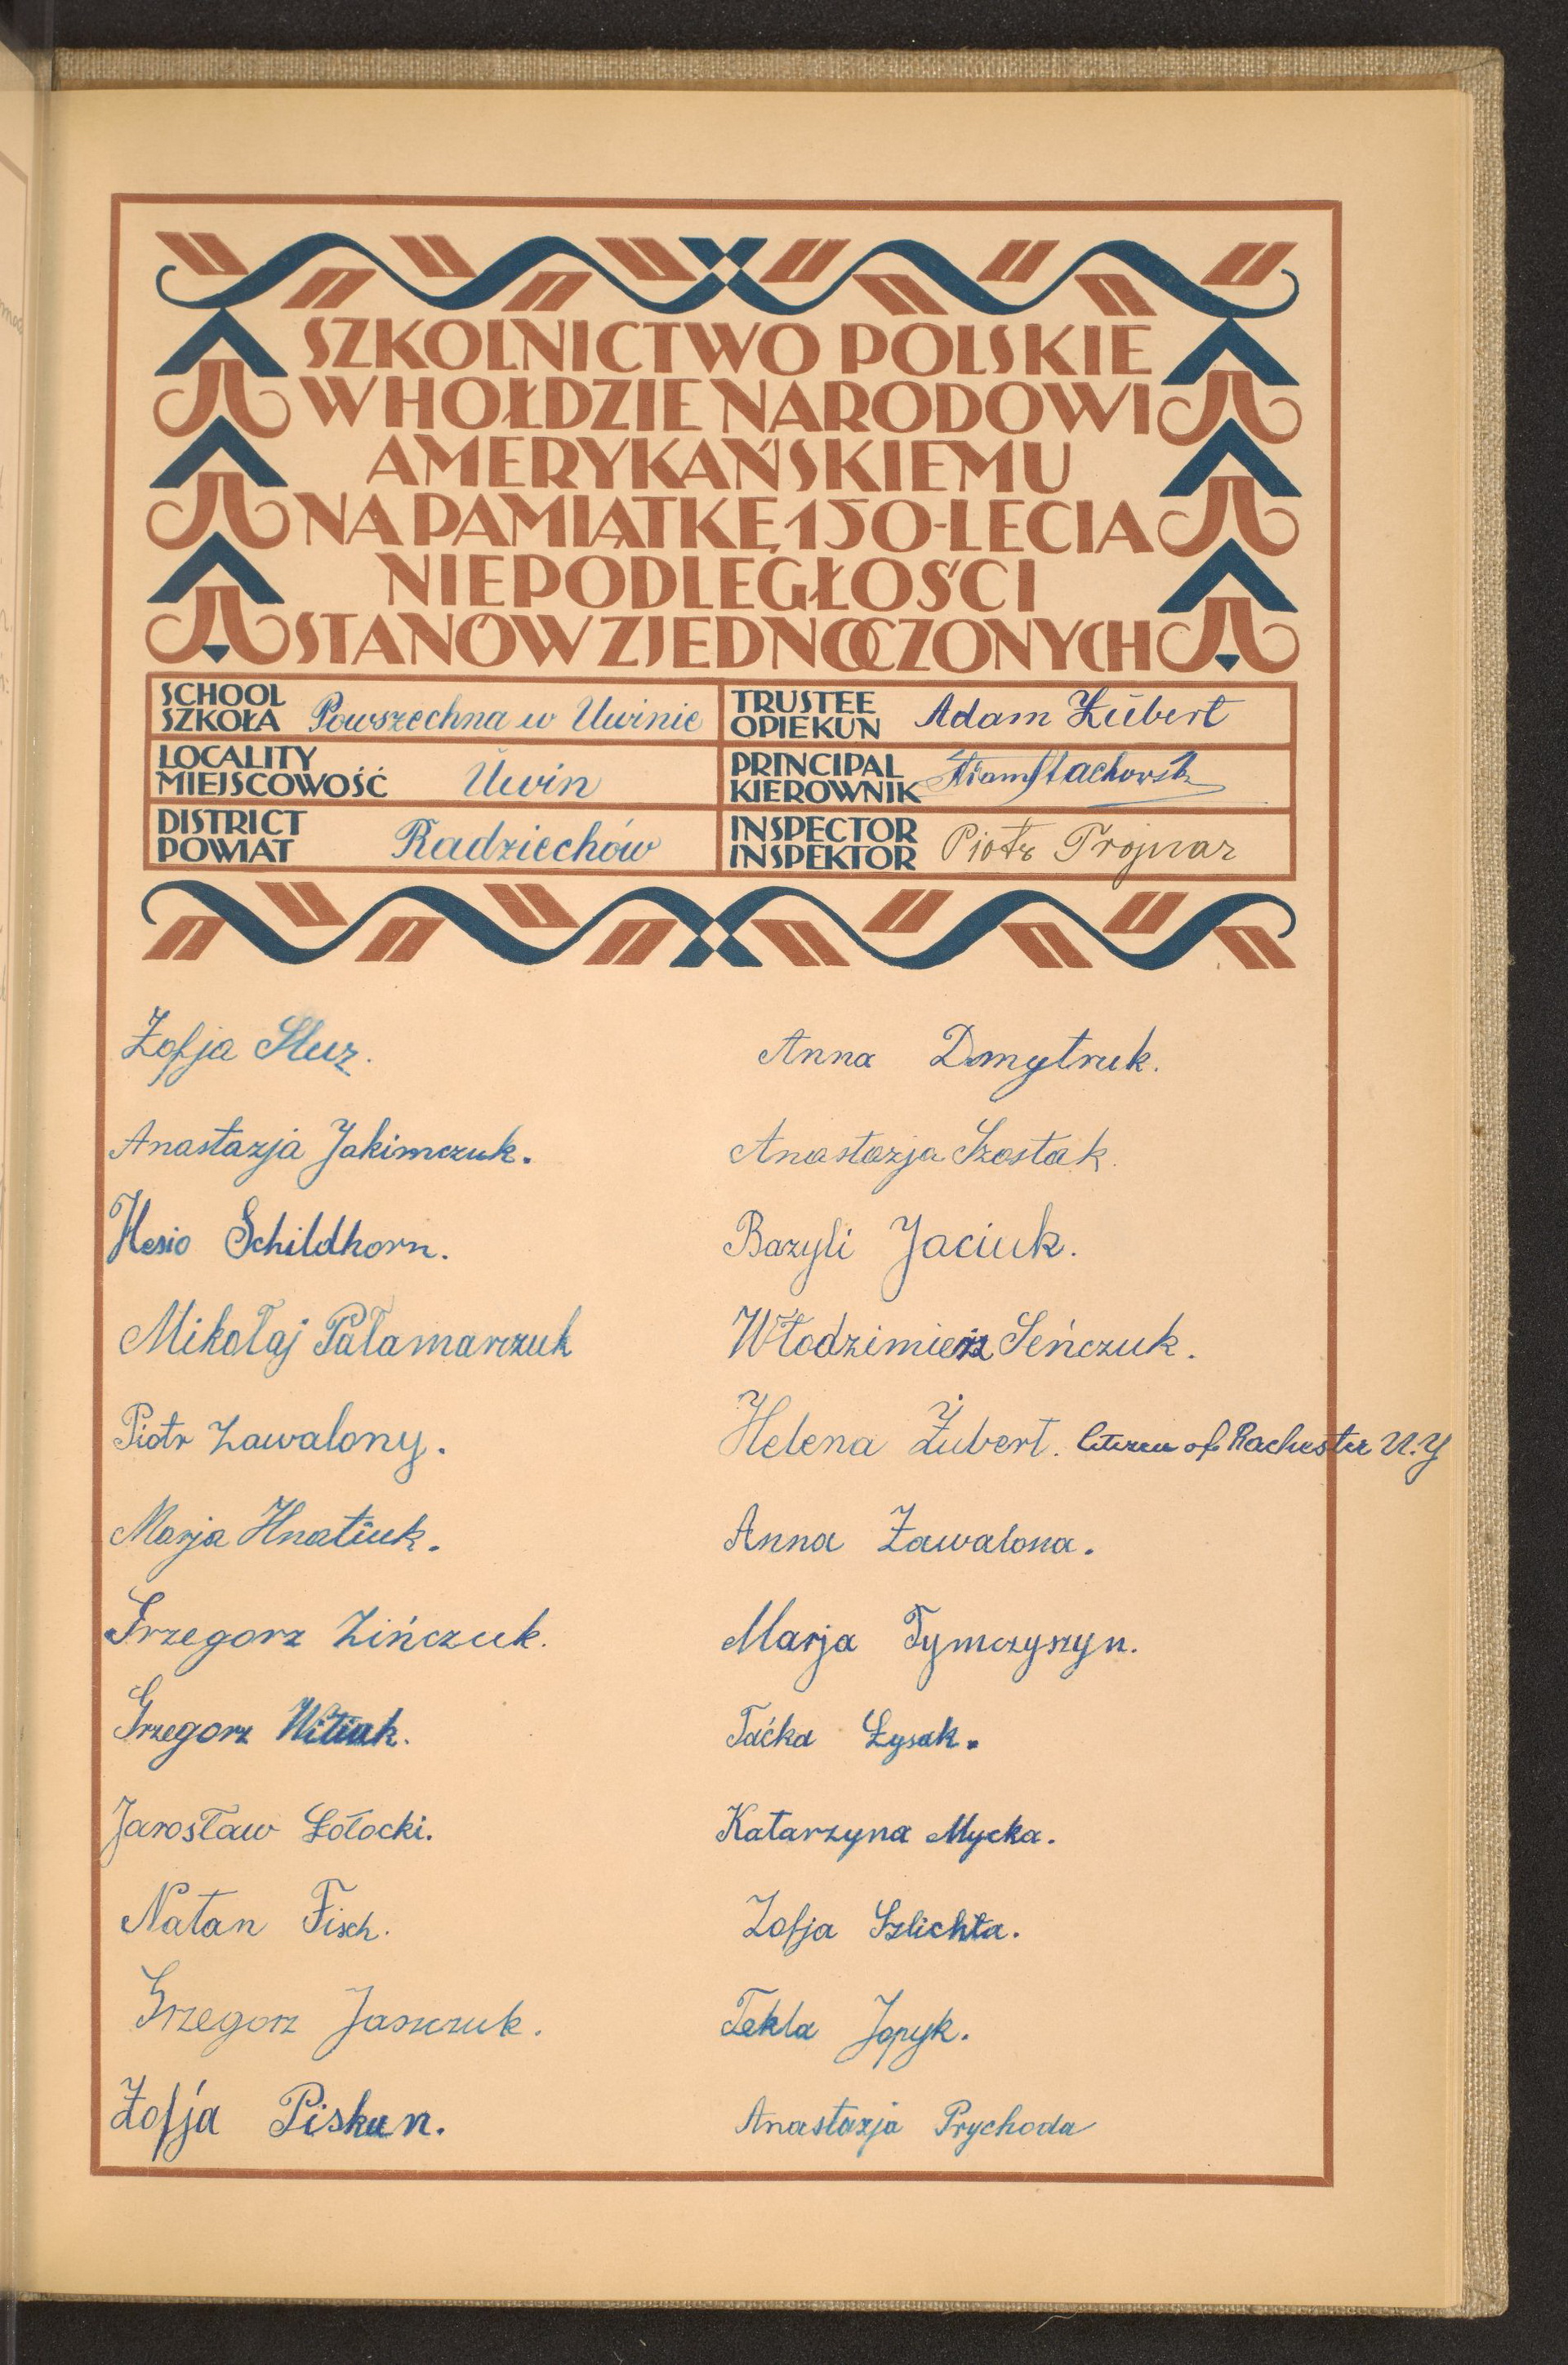 SZKOLNICTWO POLSKIE
W HOŁDZIE NARODOWI
AMERYKAŃSKIEMU
NA PAMIĄTKĘ 150-LECIA
NIEPODLEGŁOŚCI
STANÓW ZJEDNOCZONYCH
SCHOOL
SZKOŁA Powszechna w Uwinie
TRUSTEE
OPIEKUN Adam Żubert
LOCALITY
MIEJSCOWOŚĆ Uwin
PRINCIPAL
KIEROWNIK
DISTRICT
POWIAT Radziechów
INSPECTOR
INSPEKTOR Piotr Trojnar
Zofja Słuz.
Anastazja Jakimczuk.
Hesio Schildhorn.
Mikołaj Pałamarczuk
Piotr Zawalony.
Marja Hnatiuk.
Grzegorz Zińczuk.
Grzegorz Witiuk.
Jarosław Łołocki.
Natan Fisch.
Grzegorz Jaszczuk.
Zofja Piskun.
Anna Dmytruk.
Anastazja Szostak.
Bazyli Jaciuk.
Włodzimierz Seńczuk.
Helena Żubert. Citizen of Rochester N.Y
Anna Zawalona.
Marja Tymczyszyn.
Taćka Łysak.
Katarzyna Mycka.
Zofja Szlichta.
Tekla Jopyk.
Anastazja Prychoda